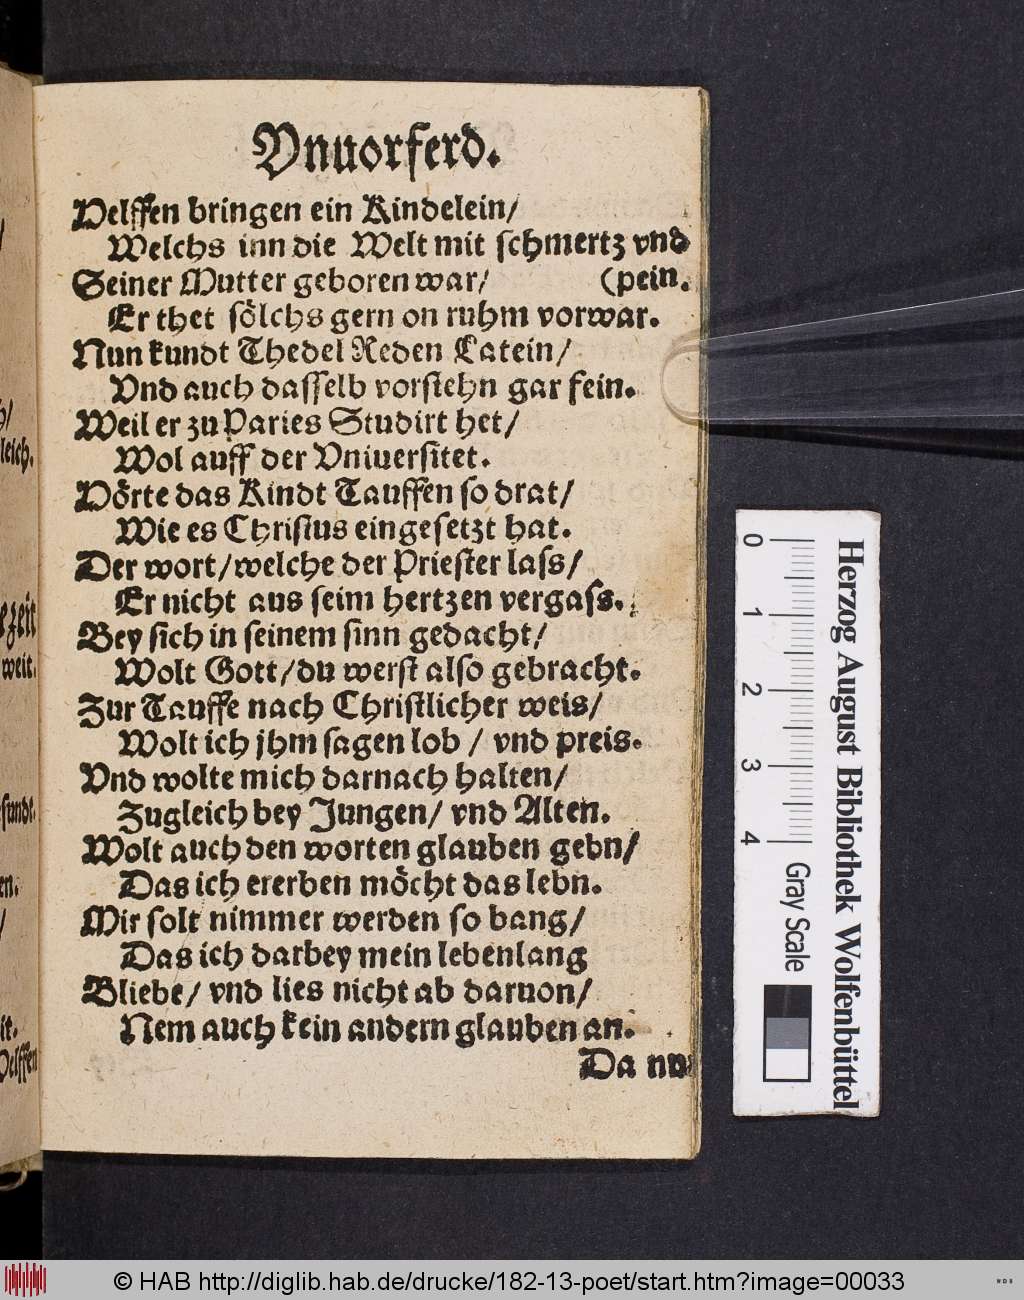 Vnuorferd.
Helffen bringen ein Kindelein/
Welchs inn die Welt mit schmertz vnd
Seiner Mutter geboren war/ (pein.
Er thet sölchs gern on ruhm vorwar.
Nun kundt Thedel Reden Latein/
Vnd auch dasselb vorstehn gar fein.
Weil er zu Paries Studirt het/
Wol auff der Vniuersitet.
Hörte das Kindt Tauffen so drat/
Wie es Christus eingesetzt hat.
Der wort/welche der Priester lass/
Er nicht aus seim hertzen vergass.
Bey sich in seinem sinn gedacht/
Wolt Gott/du werst also gebracht.
Zur Tauffe nach Christlicher weis/
Wolt ich jhm sagen lob / vnd preis.
Vnd wolte mich darnach halten/
Zugleich bey Jungen/ vnd Alten.
Wolt auch den worten glauben gebn/
Das ich ererben möcht das lebn.
Mir solt nimmer werden so bang/
Das ich darbey mein lebenlang
Bliebe/ vnd lies nicht ab daruon/
Nem auch kein andern glauben an.
Da nu
leich.
weit.
Helffen
Herzog August Bibliothek Wolfenbüttel
0 1 2 3 4
Gray Scale
© HAB http://diglib.hab.de/drucke/182-13-poet/start.htm?image=00033